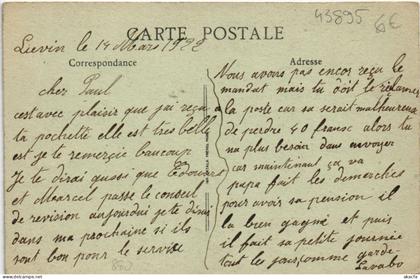 CARTE POSTALE
43895
6€
Correspondance
Adresse
Lievin le 14 Mars 1922
cher Paul
cest avec plaisir que j'ai reçu
ta pochette elle est tres belle
est je te remerçie baucoup
Je te dirai qussi que Edouard
et Marcel passe le conseil
de revision aujourdui je te dirai
dans ma prochaine si ils
sont bon pour le service
Nous avons pas encor reçu le
mandat mais tu doit le réclamer
a la poste car sa serait malheureux
de perdre 40 franc alors tu
ne plus besoin dans envoyer
car maintenant ça va
papa fait les demarches
pour avoir sa pension il
la bien gagné et puis
il fait sa petite journée
tout les jours comme garde
Lavabo